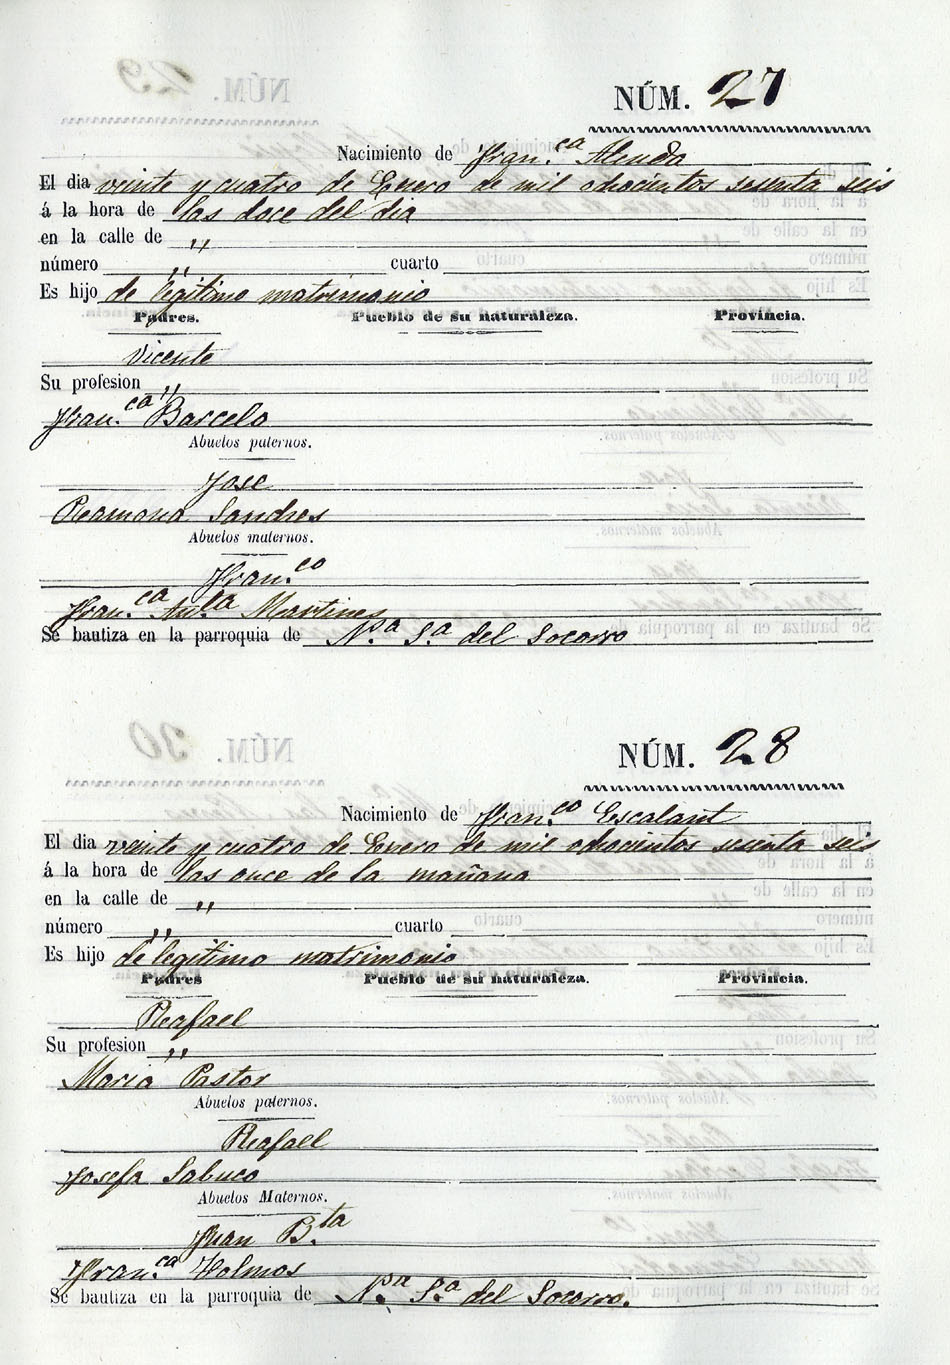 NÚM. 27
Nacimiento de Fran.ca Aleudo
El dia veinte y cuatro de Enero de mil ochocientos sesenta seis
á la hora de las doce del dia
en la calle de "
número " cuarto
Es hijo de legitimo matrimonio
Padres. Pueblo de su naturaleza. Provincia.
Vicente
Su profesion "
Fran.ca Barcelo
Abuelos paternos.
Jose
Ramona Sandres
Abuelos maternos.
Fran.co
Fran.ca An.ta Martines
Se bautiza en la parroquia de N.a S.a del Socorro
NÚM. 28
Nacimiento de Fran.co Escalant
El dia veinte y cuatro de Enero de mil ochocientos sesenta seis
á la hora de las once de la mañana
en la calle de "
número " cuarto
Es hijo de legitimo matrimonio
Padres Pueblo de su naturaleza. Provincia.
Rafael
Su profesion "
Maria Pastor
Abuelos paternos.
Rafael
Josefa Sabuco
Abuelos Maternos.
Juan B.ta
Fran.ca Holmos
Se bautiza en la parroquia de N.a S.a del Socorro.